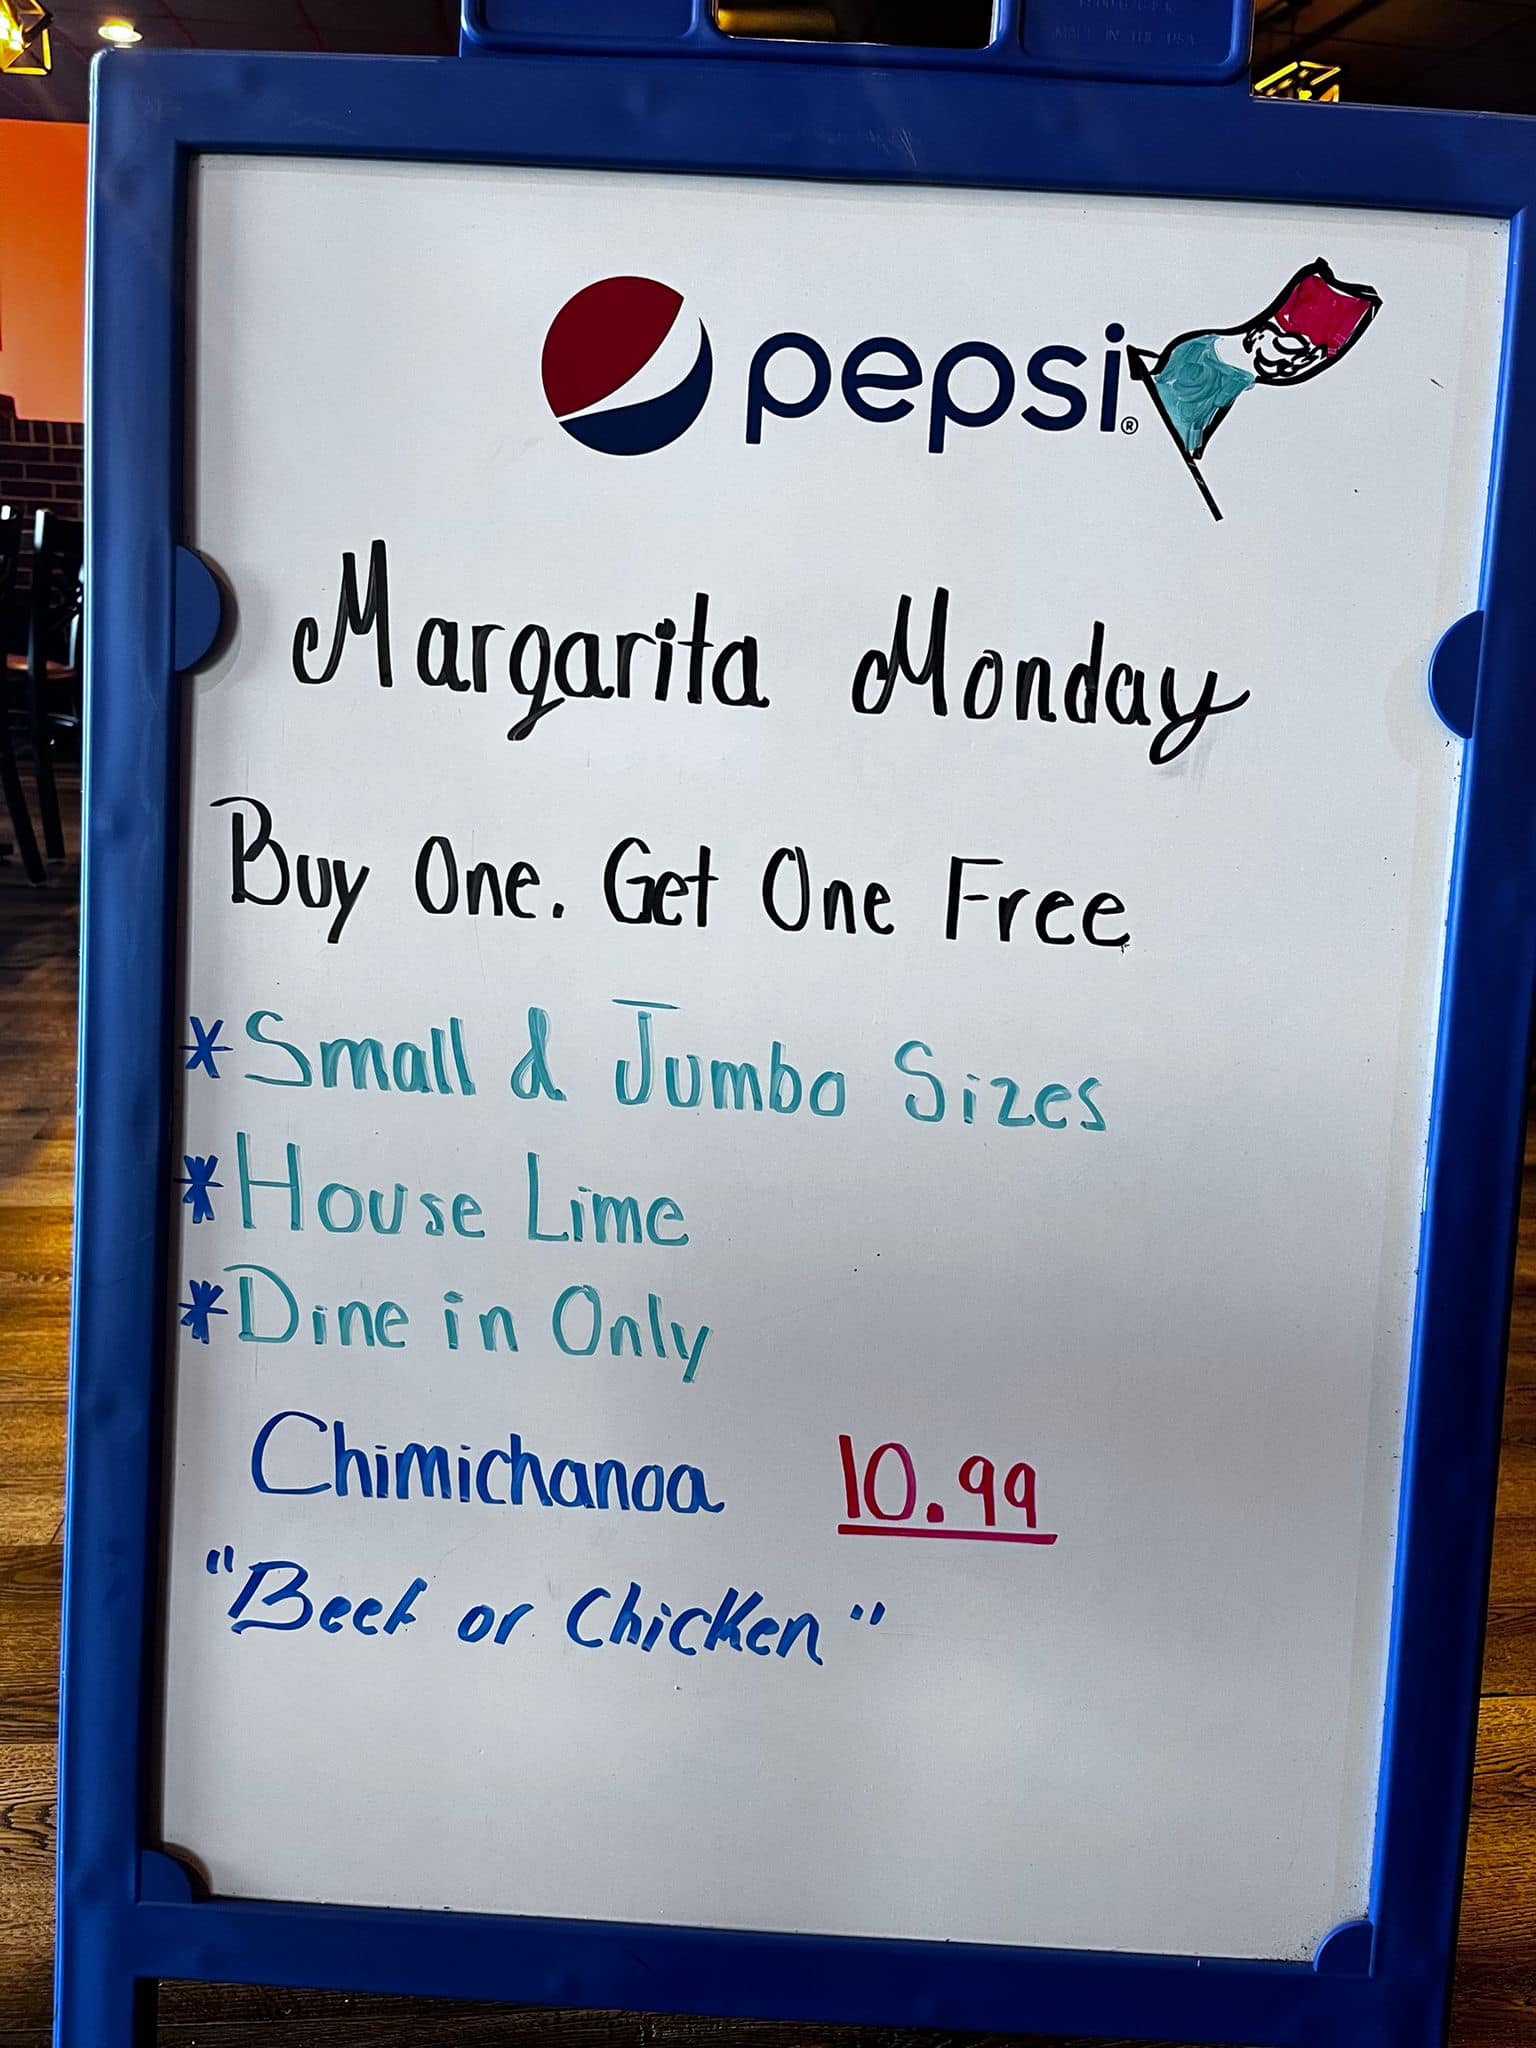 MADE IN THE USA
pepsi®
Margarita Monday
Buy One. Get One Free
*Small & Jumbo Sizes
*House Lime
*Dine in Only
Chimichanga 10.99
"Beef or Chicken"